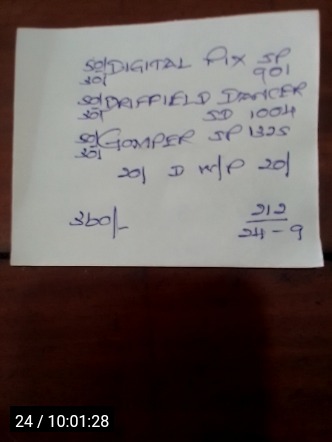 50/ DIGITAL PIX SP
30/ 901
50/ DRIFFIELD DANCER
30/ SD 1004
50/ GOMPER SP 1325
30/
20/ D W/P 20/
360/-
212
24-9
24 / 10:01:28